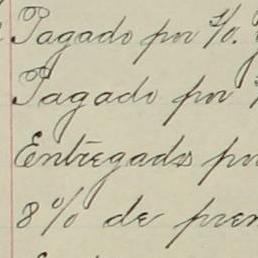 Pagado por s/o.
Pagado por
Entregados por
8% de prem